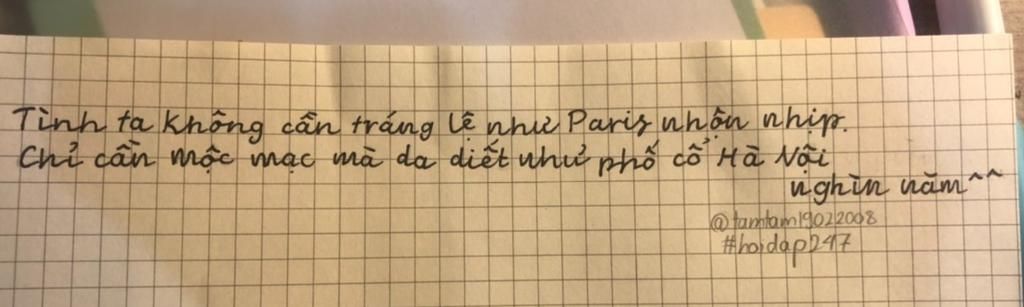 Tình ta không cần tráng lệ như Paris nhộn nhịp.
Chỉ cần mộc mạc mà da diết như phố cổ Hà Nội
nghìn năm^^
@tamtam19022008
#hoidap247